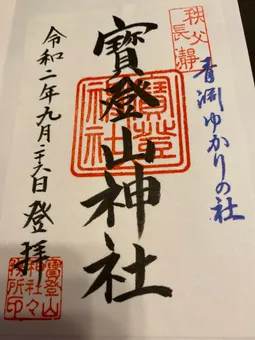 秩父
長瀞
青淵ゆかりの社
寳登山神社
寳登
山神
社
令和二年九月二六日 登拝
寳登山
神社々
務所印